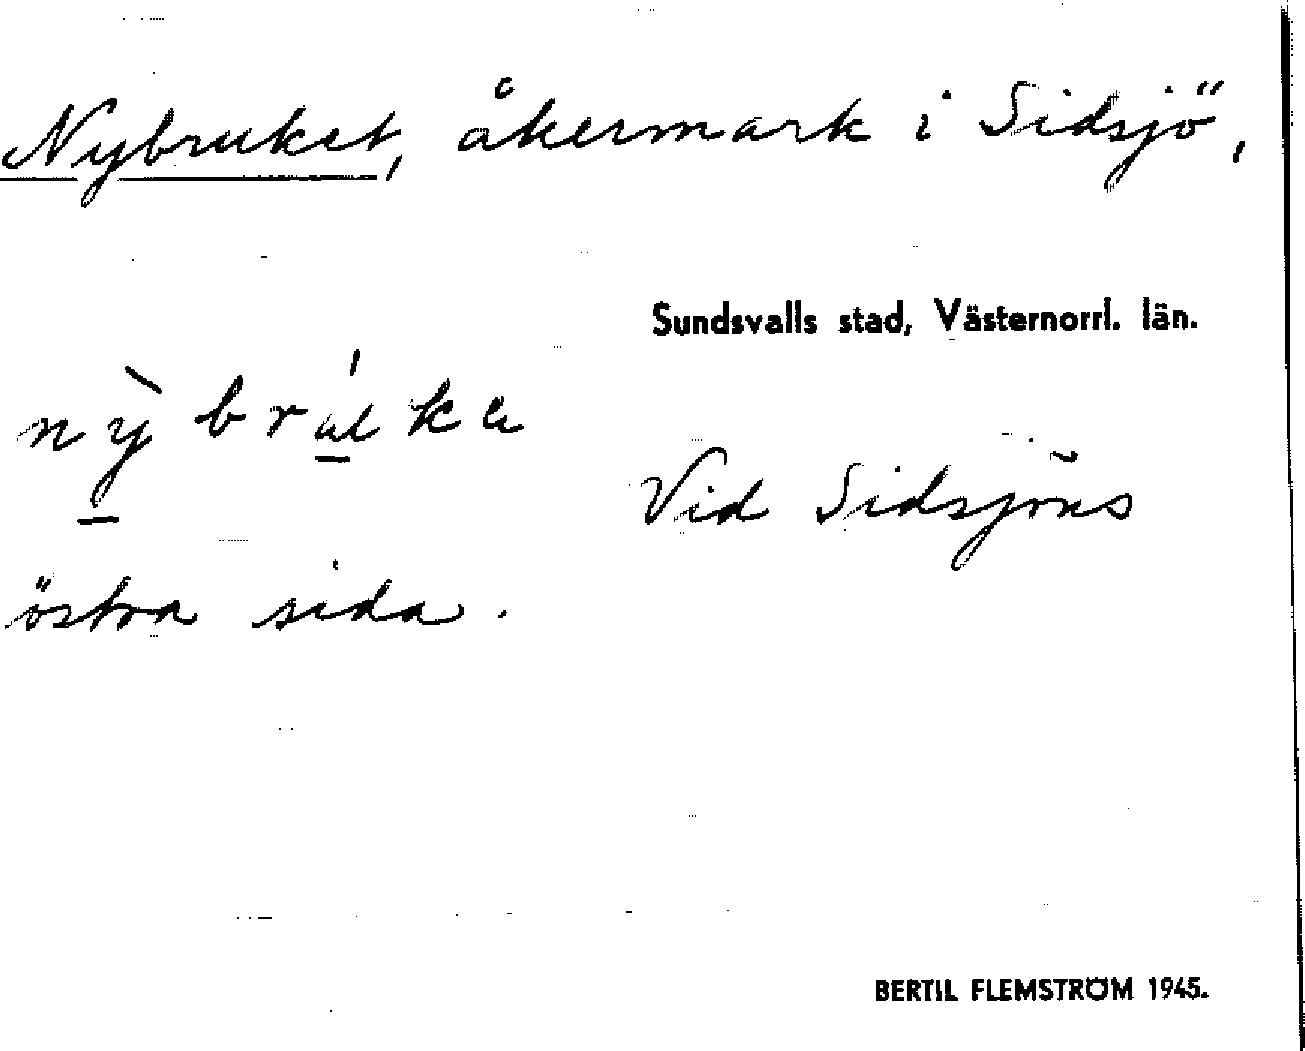 Nybruket, åkermark i Sidsjö,
Sundsvalls stad, Västernorrl. län.
Vid Sidsjöns
östra sida.
BERTIL FLEMSTRÖM 1945.